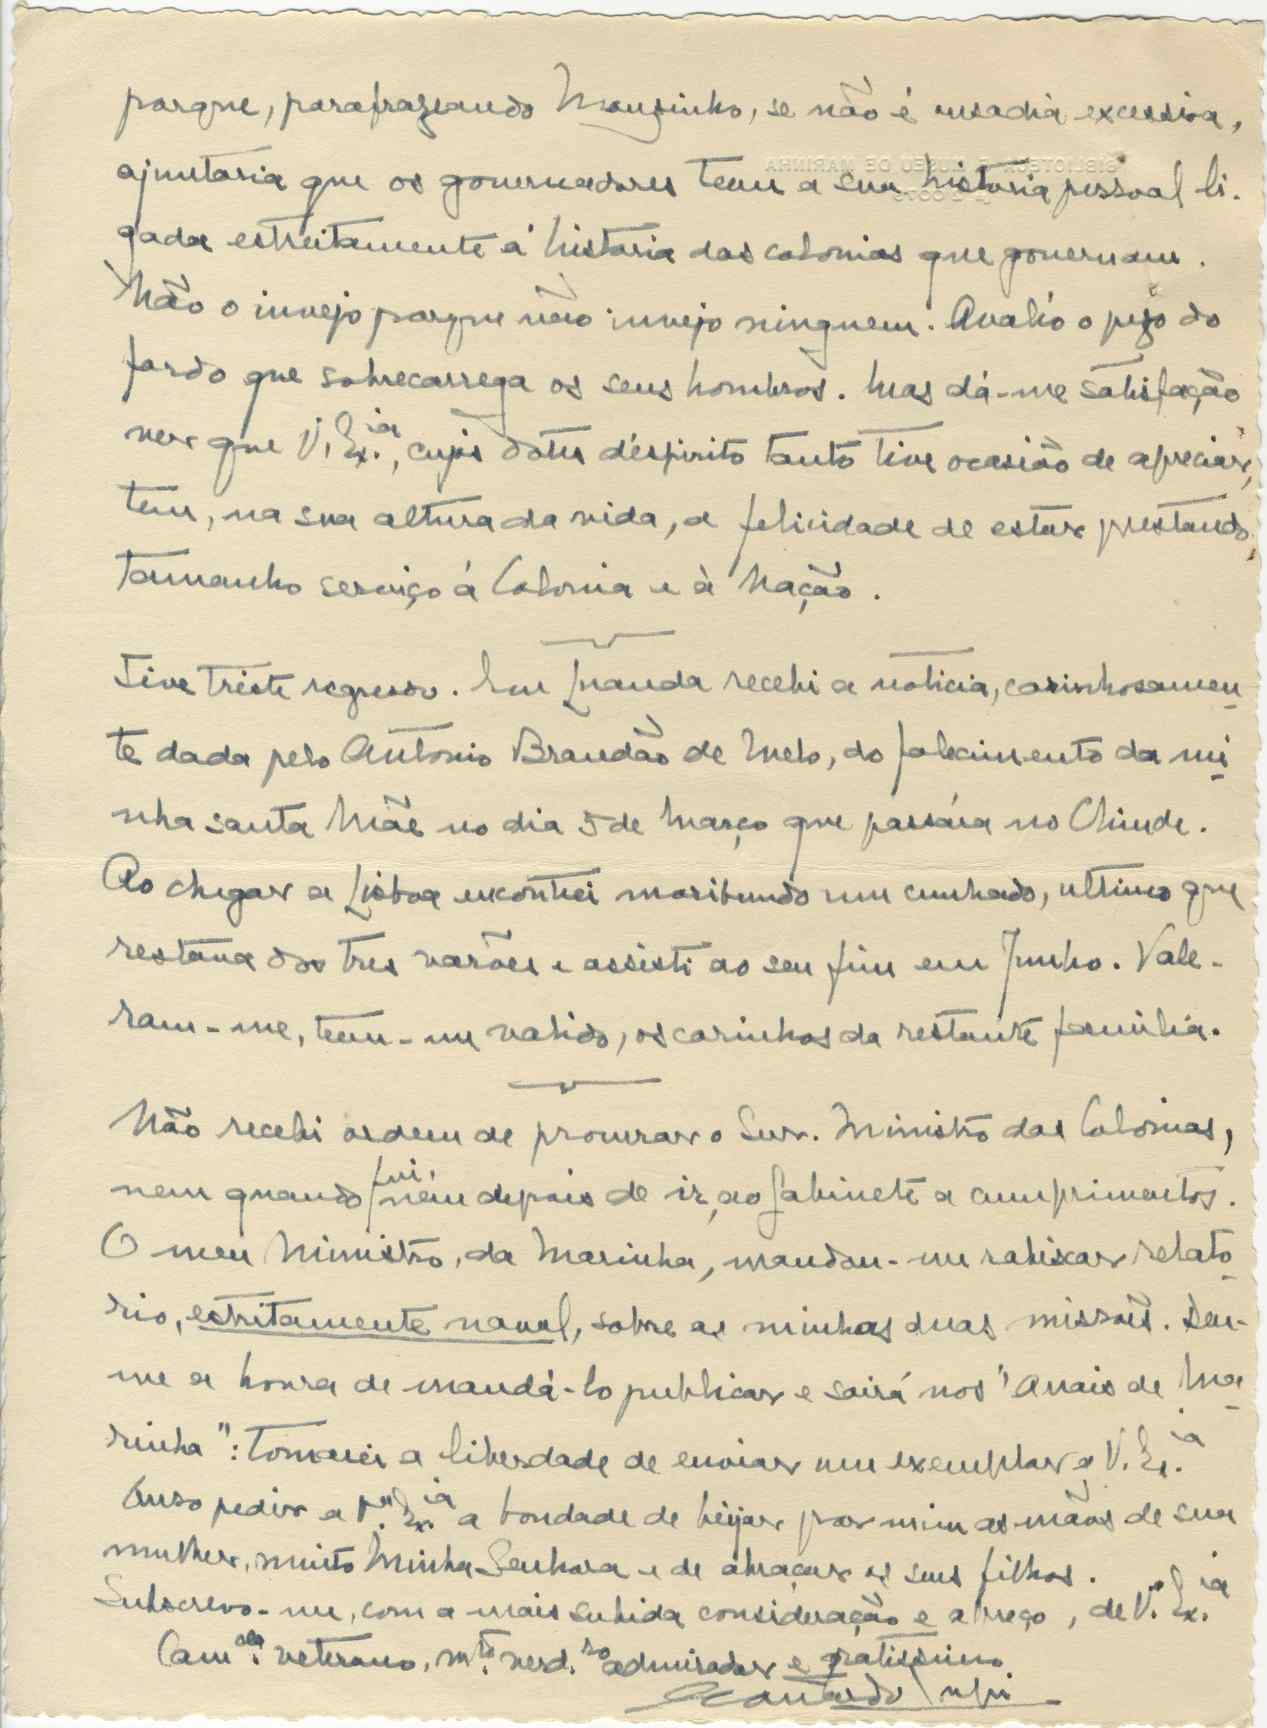 porque, parafrazeando Mouzinho, se não é ousadia excessiva,
BIBLIOTECA E MUSEU DE MARINHA
ajuntaria que os governadores teem a sua historia pessoal li-
gada estreitamente á historia das colonias que governam.
Não o invejo porque não invejo ninguem. Avalio o pezo do
fardo que sobrecarrega os seus hombros. Mas dá-me satisfação
ver que V. Ex.ia, cujos dotes d'espirito tanto tive ocasião de apreciar,
tem, na sua altura da vida, a felicidade de estar prestando
tamanho serviço á Colonia e à Nação.
Tive triste regresso. Em Luanda recebi a noticia, carinhosamen-
te dada pelo Antonio Brandão de Melo, do falecimento da mi-
nha santa Mãe no dia 5 de Março que passára no Chinde.
Ao chegar a Lisboa encontrei moribundo um cunhado, ultimo que
restava dos tres varões e assisti ao seu fim em Junho. Vale-
ram-me, teem-me valido, os carinhos da restante familia.
Não recebi ordem de procurar o Snr. Ministro das Colonias,
nem quando fui, nem depois de ir, ao gabinete a cumprimentos.
O meu Ministro, da Marinha, mandou-me rabixar relato-
rio, estritamente naval, sobre as minhas duas missões. Deu-
me a honra de mandá-lo publicar e sairá nos "Anais de Ma-
rinha": Tomarei a liberdade de enviar um exemplar a V. Ex.ia
Ouso pedir a V. Ex.ia a bondade de beijar por mim as mãos de sua
mulher, muito Minha Senhora e de abraçar os seus filhos.
Subscrevo-me, com a mais subida consideração e apreço, de V. Ex.ia
Cam.da veterano, m.to verd.ro admirador e gratissimo